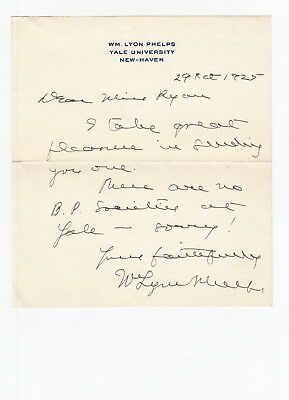 WM. LYON PHELPS
YALE UNIVERSITY
NEW-HAVEN
29 Oct 1925
Dear Miss Ryan
I take great
pleasure in sending
you one.
There are no
B.P. Societies at
Yale — sorry!
Yours faithfully
Wm Lyon Phelps